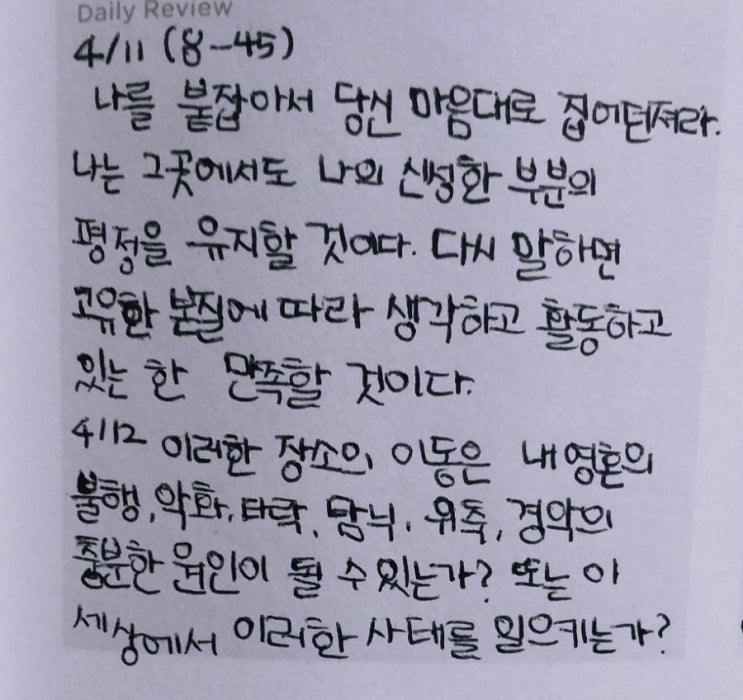 Daily Review
4/11 (8-45)
나를 붙잡아서 당신 마음대로 집어던져라.
나는 그곳에서도 나의 신성한 부분의
평정을 유지할 것이다. 다시 말하면
고유한 본질에 따라 생각하고 활동하고
있는 한 만족할 것이다.
4/12 이러한 장소의 이동은 내 영혼의
불행, 악화, 타락, 탐닉, 위축, 경악의
충분한 원인이 될 수 있는가? 또는 이
세상에서 이러한 사태를 일으키는가?